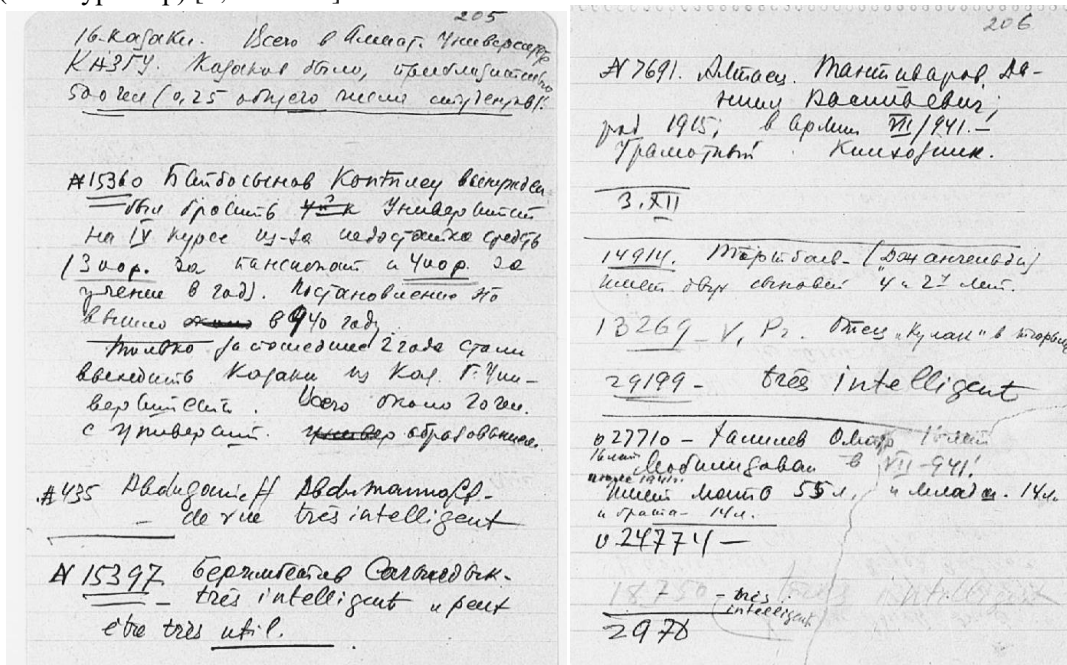 205
16. Казаки. Всего в Алмат. Университете
КАЗГУ. Казаков было, приблизительно
500 чел (0,25 общего числа студентов).
№15360 Байбосынов вынужден
был бросить Университет
на IV курсе из-за недостатка средств
(3 за пансионат и 400р. за
учение в год). Постановление это
вышло в 940 году.
Только за последние 2 года стали
выходить Казаки из Каз. Г. Уни-
верситета. Всего около 20 чел.
с Университ. образованием.
№435 Abduganieff
de vue très intelligent
№ 15397 Беримбетов
très intelligent и peut
être très util.
206
№ 7691. Алтаец. Тантываров Да-
ниил Васильевич;
род 1915; в армии VII/941.-
Грамотный.
3.XII
14914. - (Джангельды)
имеет двух сыновей 4 и 2 лет.
13269 - V, Pr. Отец "Кулак" в
29199 - très intelligent
27710 - Халилев Омар 16 лет
16 лет
Мобилизован в VII-941.
имеет 55 л. и 14 л.
и брата - 14 л.
24774 -
18.750 - très
intelligent
2976